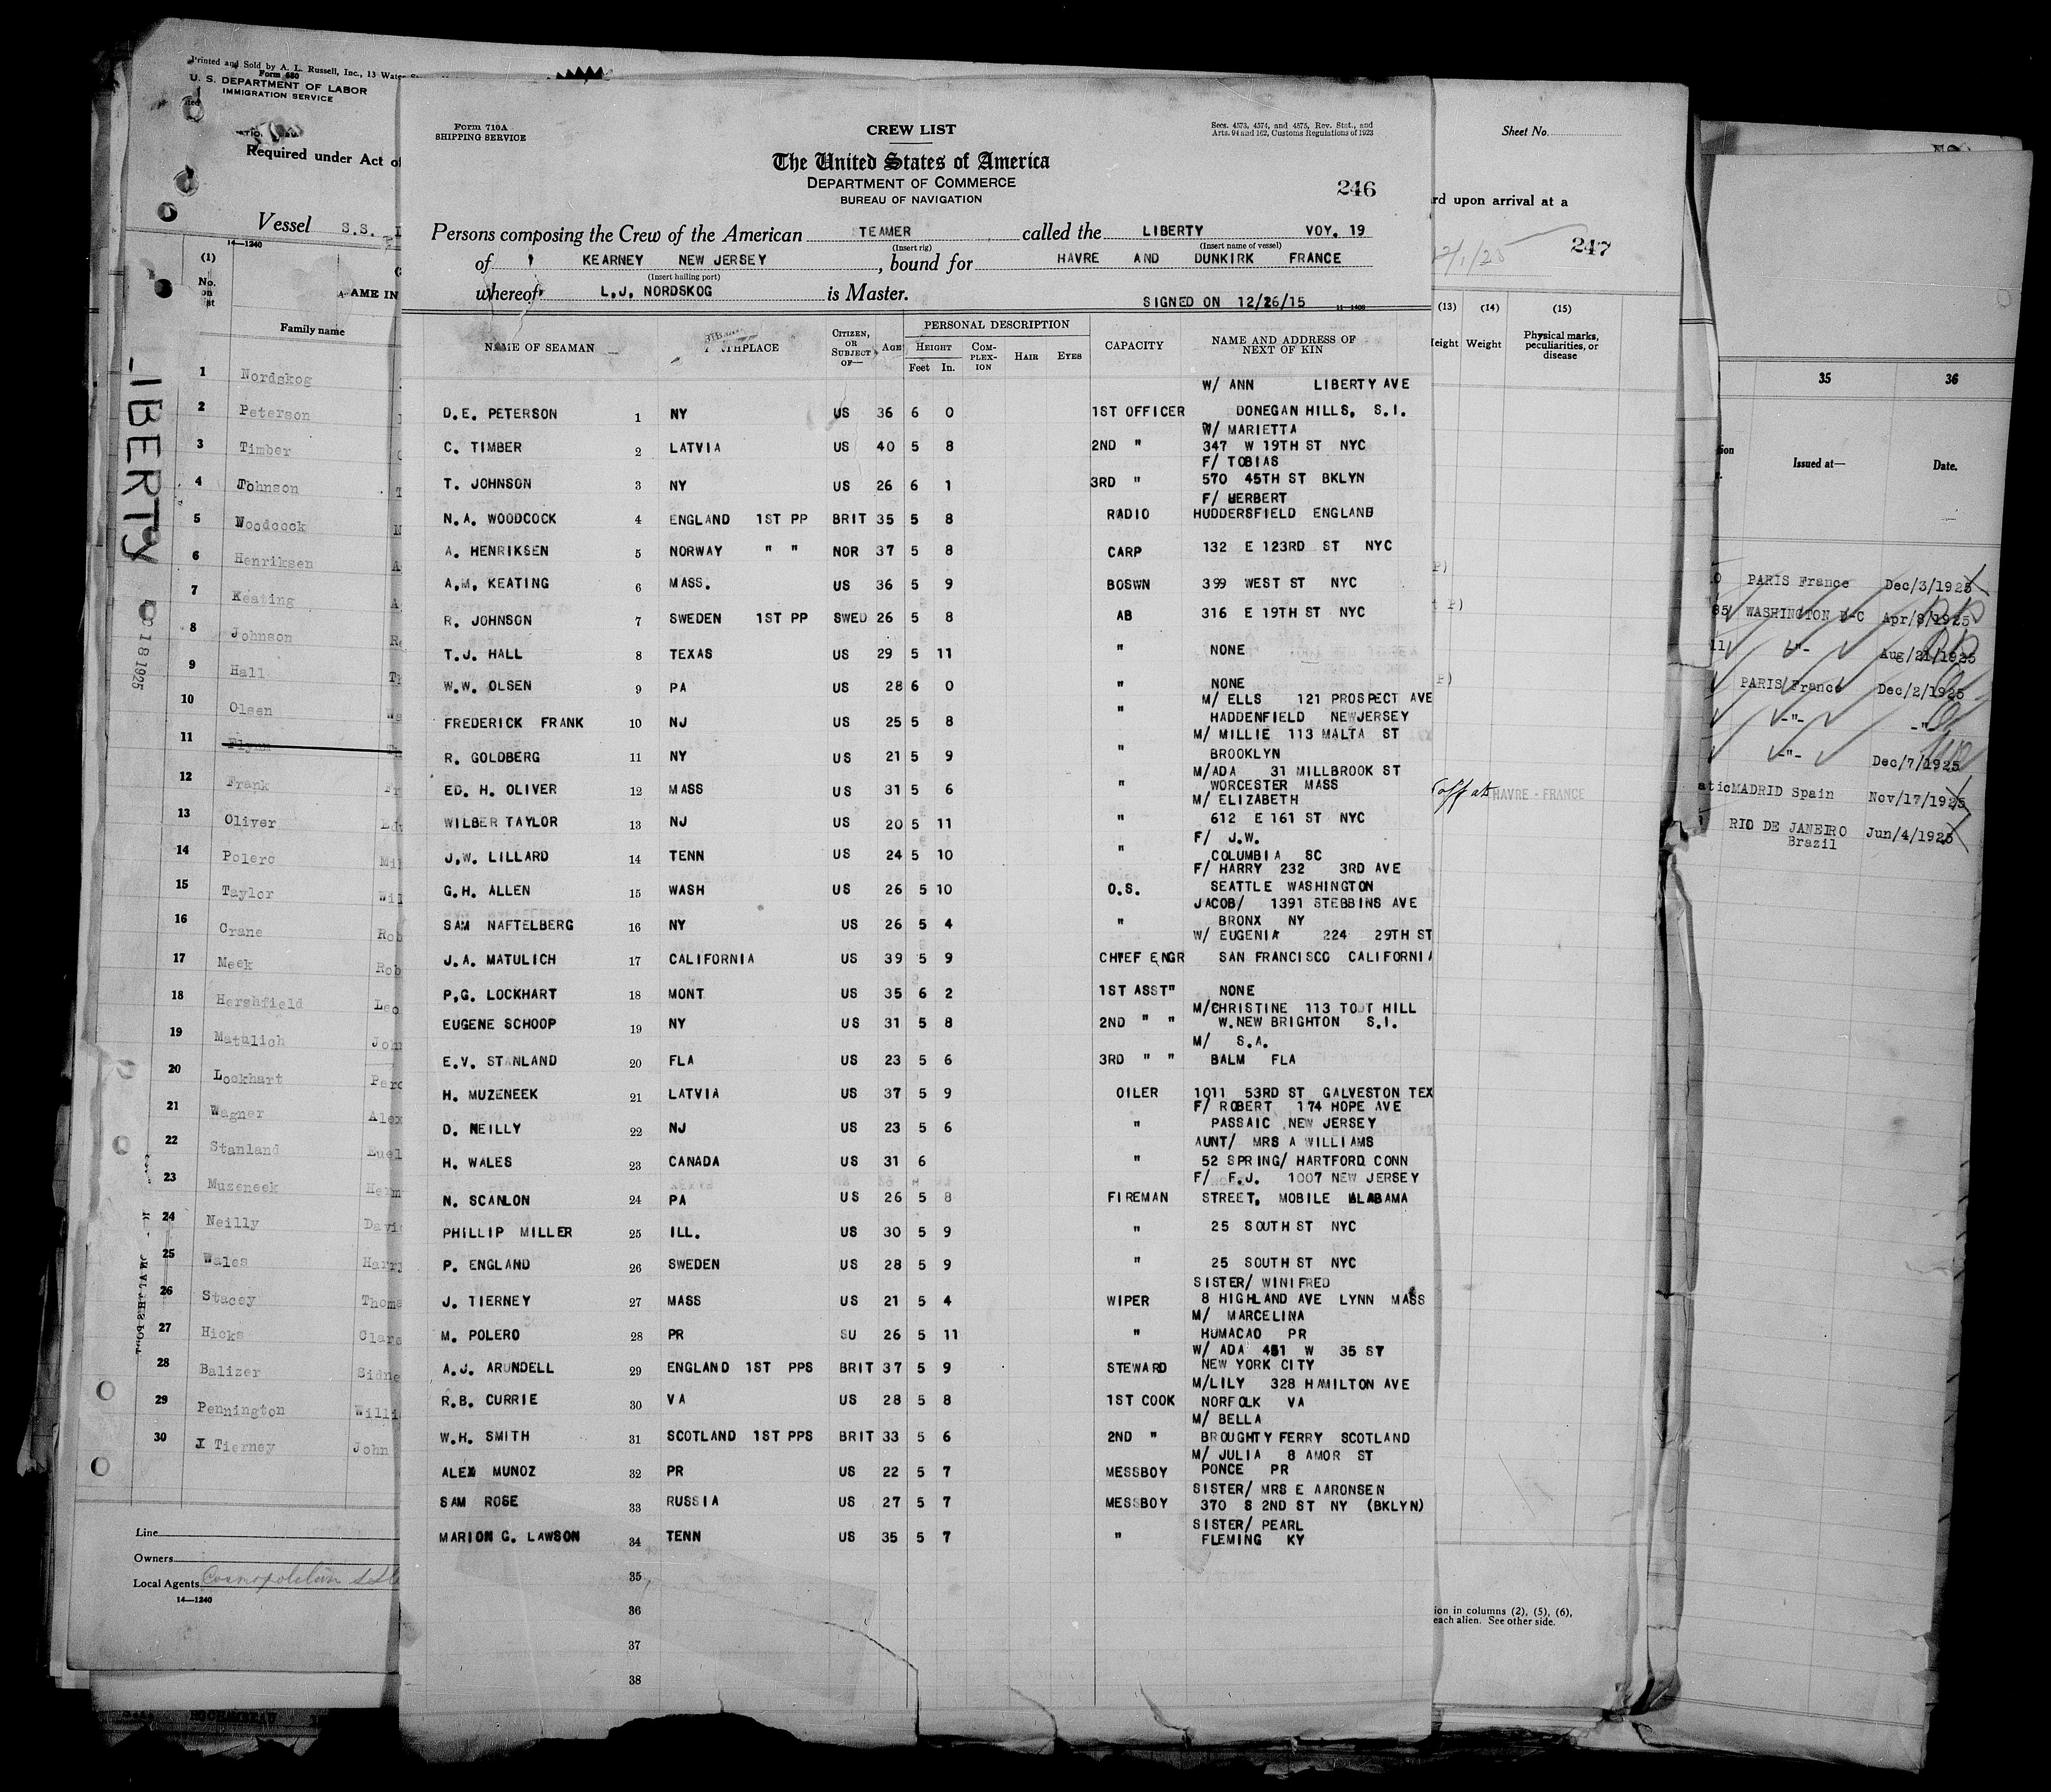 Printed and Sold by A. L. Russell, Inc., 13 Water
Form 680
U. S. DEPARTMENT OF LABOR
IMMIGRATION SERVICE
Required under Act of
Vessel S.S.
14—1240
(1)
No. on
Family name
NAME IN
LIBERTY
DEC 18 1925
1 Nordskog
2 Peterson
3 Timber
4 Johnson
5 Woodcock
6 Henriksen
7 Keating
8 Johnson
9 Hall
10 Olsen
11 Flynn
12 Frank
13 Oliver
14 Polero
15 Taylor
16 Crane
17 Meek
18 Hershfield
19 Matulich
20 Lockhart
21 Wagner
22 Stanland
23 Muzeneek
24 Neilly
25 Wales
26 Stacey
27 Hicks
28 Balizer
29 Pennington
30 Tierney John
Line
Owners
Local Agents Cosmopolitan
14—1240
Form 710A
SHIPPING SERVICE
CREW LIST
Secs. 4573, 4574, and 4575, Rev. Stat., and
Arts. 94 and 162, Customs Regulations of 1923
The United States of America
DEPARTMENT OF COMMERCE
BUREAU OF NAVIGATION
246
Persons composing the Crew of the American STEAMER called the LIBERTY VOY. 19
(Insert rig) (Insert name of vessel)
of KEARNEY NEW JERSEY, bound for HAVRE AND DUNKIRK FRANCE
(Insert hailing port)
whereof L.J. NORDSKOG is Master.
SIGNED ON 12/26/15 11—1408
NAME OF SEAMAN BIRTHPLACE CITIZEN, OR SUBJECT OF— AGE PERSONAL DESCRIPTION HEIGHT Feet In. COMPLEXION HAIR EYES CAPACITY NAME AND ADDRESS OF NEXT OF KIN
W/ ANN LIBERTY AVE
D.E. PETERSON 1 NY US 36 6 0 1ST OFFICER DONEGAN HILLS, S.I.
W/ MARIETTA
C. TIMBER 2 LATVIA US 40 5 8 2ND " 347 W 19TH ST NYC
F/ TOBIAS
T. JOHNSON 3 NY US 26 6 1 3RD " 570 45TH ST BKLYN
F/ HERBERT
N.A. WOODCOCK 4 ENGLAND 1ST PP BRIT 35 5 8 RADIO HUDDERSFIELD ENGLAND
A. HENRIKSEN 5 NORWAY " " NOR 37 5 8 CARP 132 E 123RD ST NYC
A.M. KEATING 6 MASS. US 36 5 9 BOSWN 399 WEST ST NYC
R. JOHNSON 7 SWEDEN 1ST PP SWED 26 5 8 AB 316 E 19TH ST NYC
T.J. HALL 8 TEXAS US 29 5 11 " NONE
W.W. OLSEN 9 PA US 28 6 0 " NONE
M/ ELLS 121 PROSPECT AVE
FREDERICK FRANK 10 NJ US 25 5 8 " HADDENFIELD NEWJERSEY
M/ MILLIE 113 MALTA ST
R. GOLDBERG 11 NY US 21 5 9 " BROOKLYN
M/ADA 31 MILLBROOK ST
ED. H. OLIVER 12 MASS US 31 5 6 " WORCESTER MASS
M/ ELIZABETH
WILBER TAYLOR 13 NJ US 20 5 11 " 612 E 161 ST NYC
F/ J.W.
J.W. LILLARD 14 TENN US 24 5 10 " COLUMBIA SC
F/ HARRY 232 3RD AVE
G.H. ALLEN 15 WASH US 26 5 10 O.S. SEATTLE WASHINGTON
JACOB/ 1391 STEBBINS AVE
SAM NAFTELBERG 16 NY US 26 5 4 " BRONX NY
W/ EUGENIA 224 29TH ST
J.A. MATULICH 17 CALIFORNIA US 39 5 9 CHIEF ENGR SAN FRANCISCO CALIFORNIA
P.G. LOCKHART 18 MONT US 35 6 2 1ST ASST" NONE
M/CHRISTINE 113 TOOT HILL
EUGENE SCHOOP 19 NY US 31 5 8 2ND " " W.NEW BRIGHTON S.I.
M/ S.A.
E.V. STANLAND 20 FLA US 23 5 6 3RD " " BALM FLA
H. MUZENEEK 21 LATVIA US 37 5 9 OILER 1011 53RD ST GALVESTON TEX
F/ ROBERT 174 HOPE AVE
D. NEILLY 22 NJ US 23 5 6 " PASSAIC NEW JERSEY
AUNT/ MRS A WILLIAMS
H. WALES 23 CANADA US 31 6 " 52 SPRING/ HARTFORD CONN
F/ F.J. 1007 NEW JERSEY
N. SCANLON 24 PA US 26 5 8 FIREMAN STREET, MOBILE ALABAMA
PHILLIP MILLER 25 ILL. US 30 5 9 " 25 SOUTH ST NYC
P. ENGLAND 26 SWEDEN US 28 5 9 " 25 SOUTH ST NYC
SISTER/ WINIFRED
J. TIERNEY 27 MASS US 21 5 4 WIPER 8 HIGHLAND AVE LYNN MASS
M/ MARCELINA
M. POLERO 28 PR SU 26 5 11 " HUMACAO PR
W/ ADA 451 W 35 ST
A.J. ARUNDELL 29 ENGLAND 1ST PPS BRIT 37 5 9 STEWARD NEW YORK CITY
M/LILY 328 HAMILTON AVE
R.B. CURRIE 30 VA US 28 5 8 1ST COOK NORFOLK VA
M/ BELLA
W.H. SMITH 31 SCOTLAND 1ST PPS BRIT 33 5 6 2ND " BROUGHTY FERRY SCOTLAND
M/ JULIA 8 AMOR ST
ALEX MUNOZ 32 PR US 22 5 7 MESSBOY PONCE PR
SISTER/ MRS E AARONSEN
SAM ROSE 33 RUSSIA US 27 5 7 MESSBOY 370 S 2ND ST NY (BKLYN)
SISTER/ PEARL
MARION G. LAWSON 34 TENN US 35 5 7 " FLEMING KY
35
36
37
38
Sheet No.
rd upon arrival at a
247
(13) (14) (15)
Height Weight Physical marks, peculiarities, or disease
off at HAVRE - FRANCE
ion in columns (2), (5), (6),
each alien. See other side.
35 36
Issued at— Date.
PARIS France Dec/3/1925
WASHINGTON D-C Apr/8/1925
-"- Aug/21/1925
PARIS France Dec/2/1925
-"- -"-
-"- Dec/7/1925
MADRID Spain Nov/17/1925
RIO DE JANEIRO Jun/4/1925
Brazil